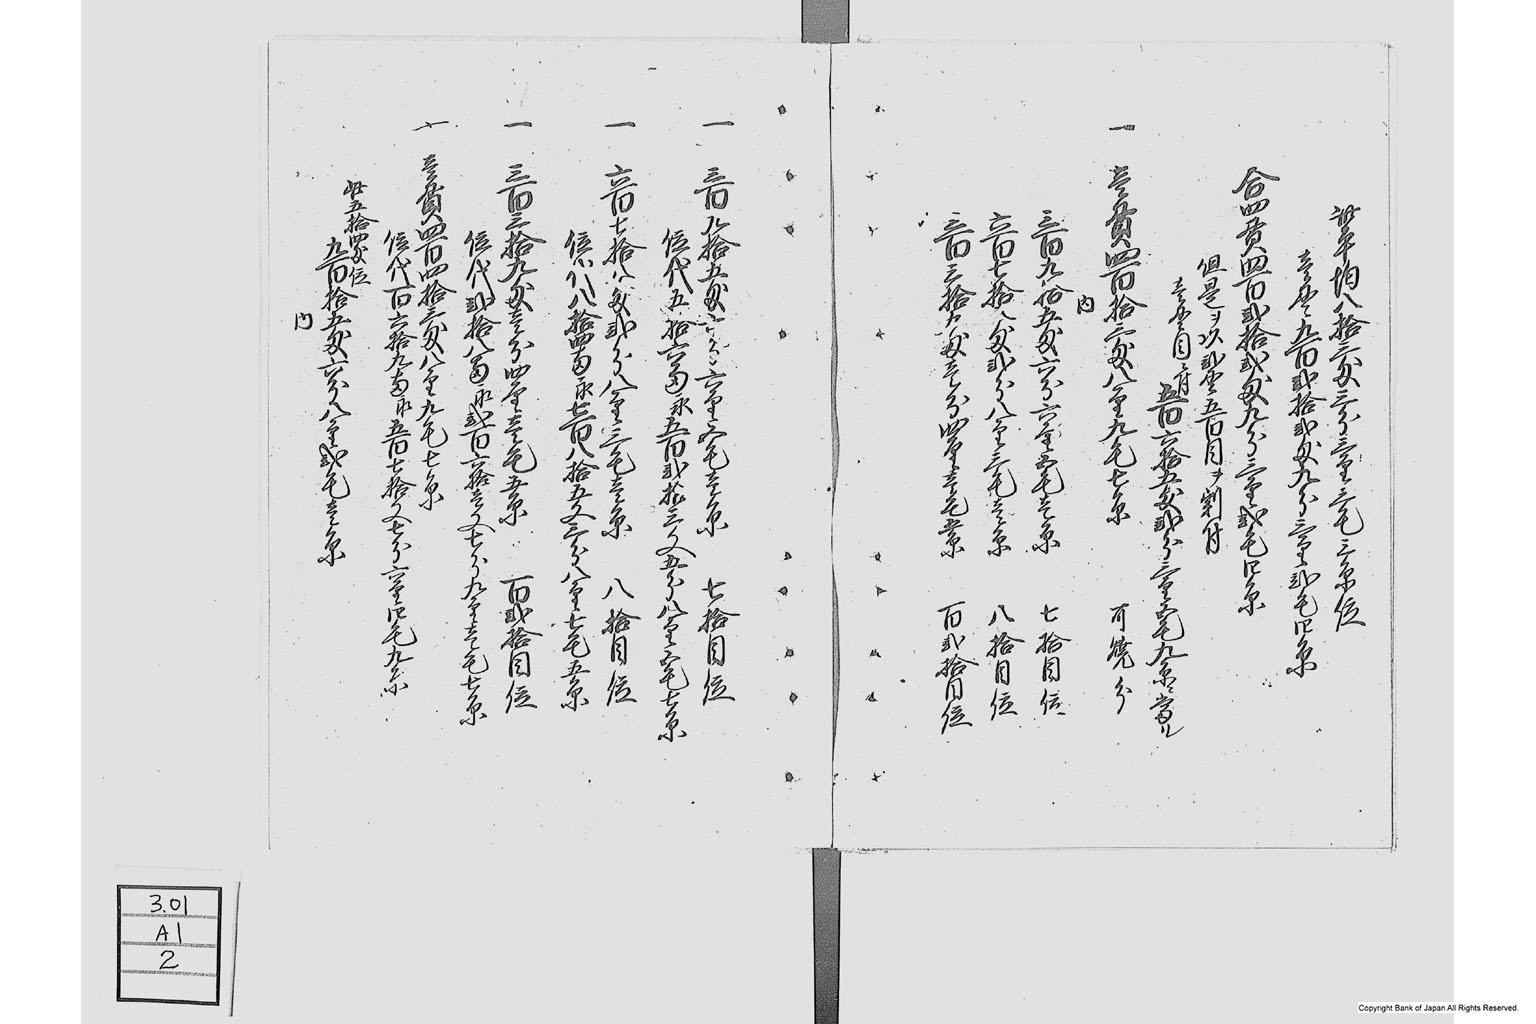 此平均八拾三匁三分三厘三毛三糸位
壱貫九百弐拾弐匁九分三厘弐毛四糸
合四貫四百弐拾弐匁九分三厘弐毛四糸
但是ヲ以弐貫五百目ヲ割付
壱貫目ニ付
五百六拾五匁弐分三厘五毛九糸ニ当ル
一 壱貫四百拾三匁八厘九毛七糸 可焼分
内
三百九拾五匁六分六厘五毛壱糸 七拾目位
六百七拾八匁弐分八厘三毛壱糸 八拾目位
三百三拾九匁壱分四厘壱毛五糸 百弐拾目位
一 三百九拾五匁六分六厘五毛壱糸 七拾目位
位代五拾六両永五百弐拾三文五分八厘五毛七糸
一 六百七拾八匁弐分八厘三毛壱糸 八拾目位
位代八拾四両永七百八拾五文三分八厘七毛五糸
一 三百三拾九匁壱分四厘壱毛五糸 百弐拾目位
位代弐拾八両永弐百六拾壱文七分九厘壱毛七糸
〆 壱貫四百拾三匁八厘九毛七糸
位代百六拾九両永五百七拾文七分六厘四毛九糸
此五拾四匁位
九百拾五匁六分八厘弐毛壱糸
内
3.01
A1
2
Copyright Bank of Japan All Rights Reserved.